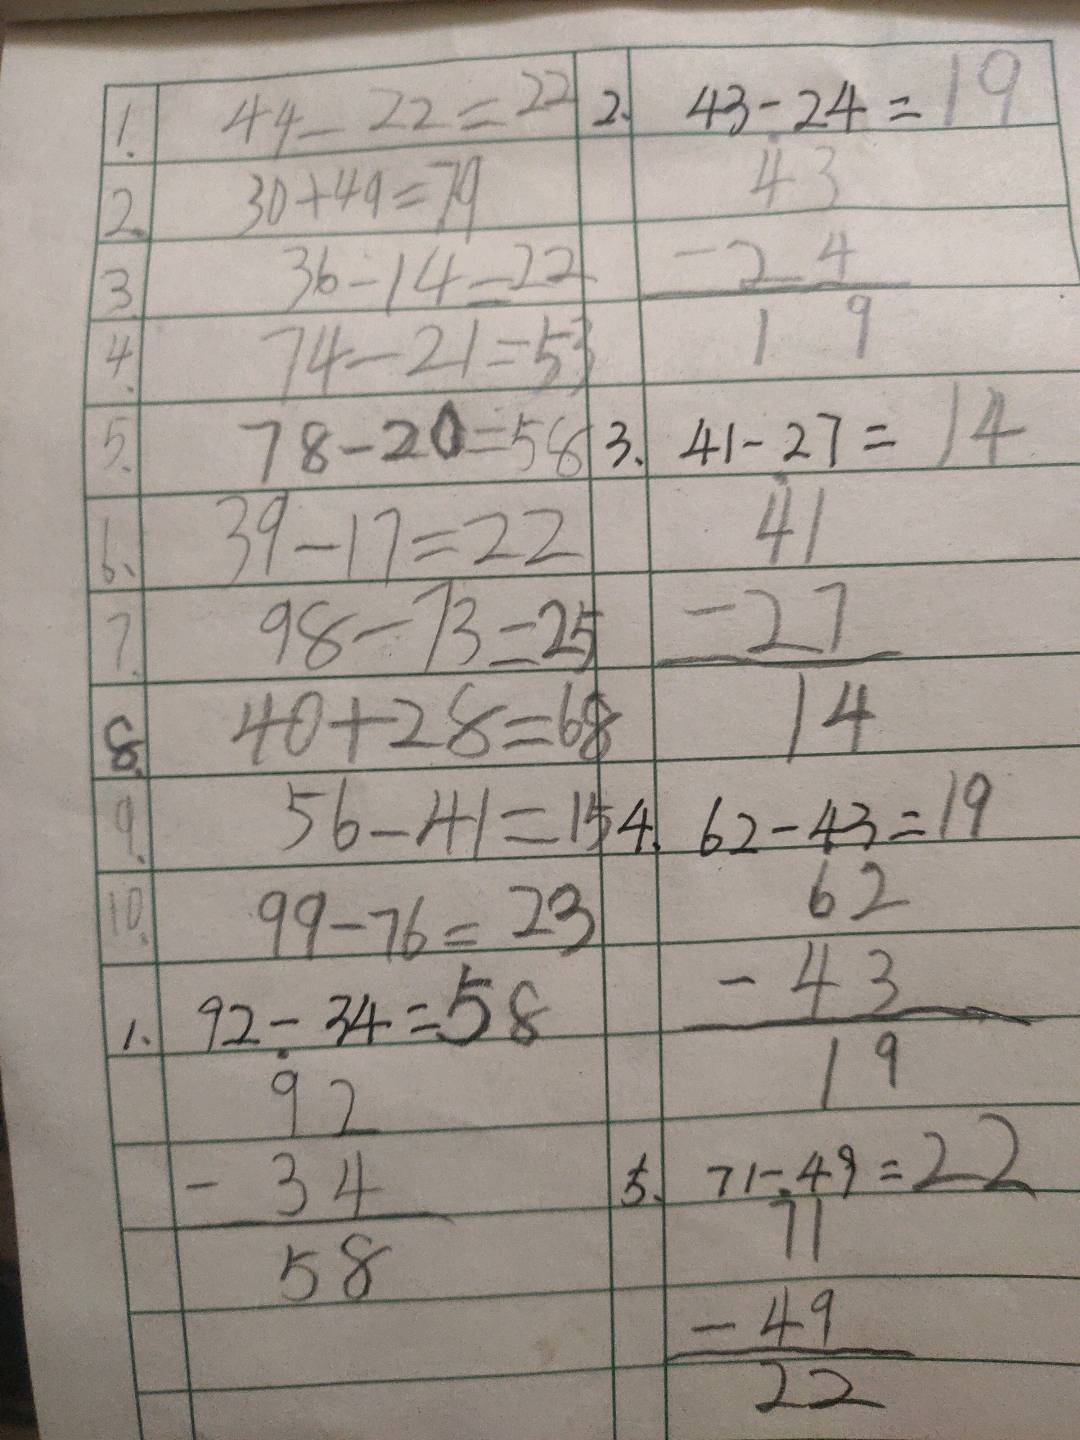 1. 44-22=22
2. 30+49=79
3. 36-14=22
4. 74-21=53
5. 78-20=58
6. 39-17=22
7. 98-73=25
8. 40+28=68
9. 56-41=15
10. 99-76=23
1. 92-34=58
92
-34
58
2. 43-24=19
43
-24
19
3. 41-27=14
41
-27
14
4. 62-43=19
62
-43
19
5. 71-49=22
71
-49
22